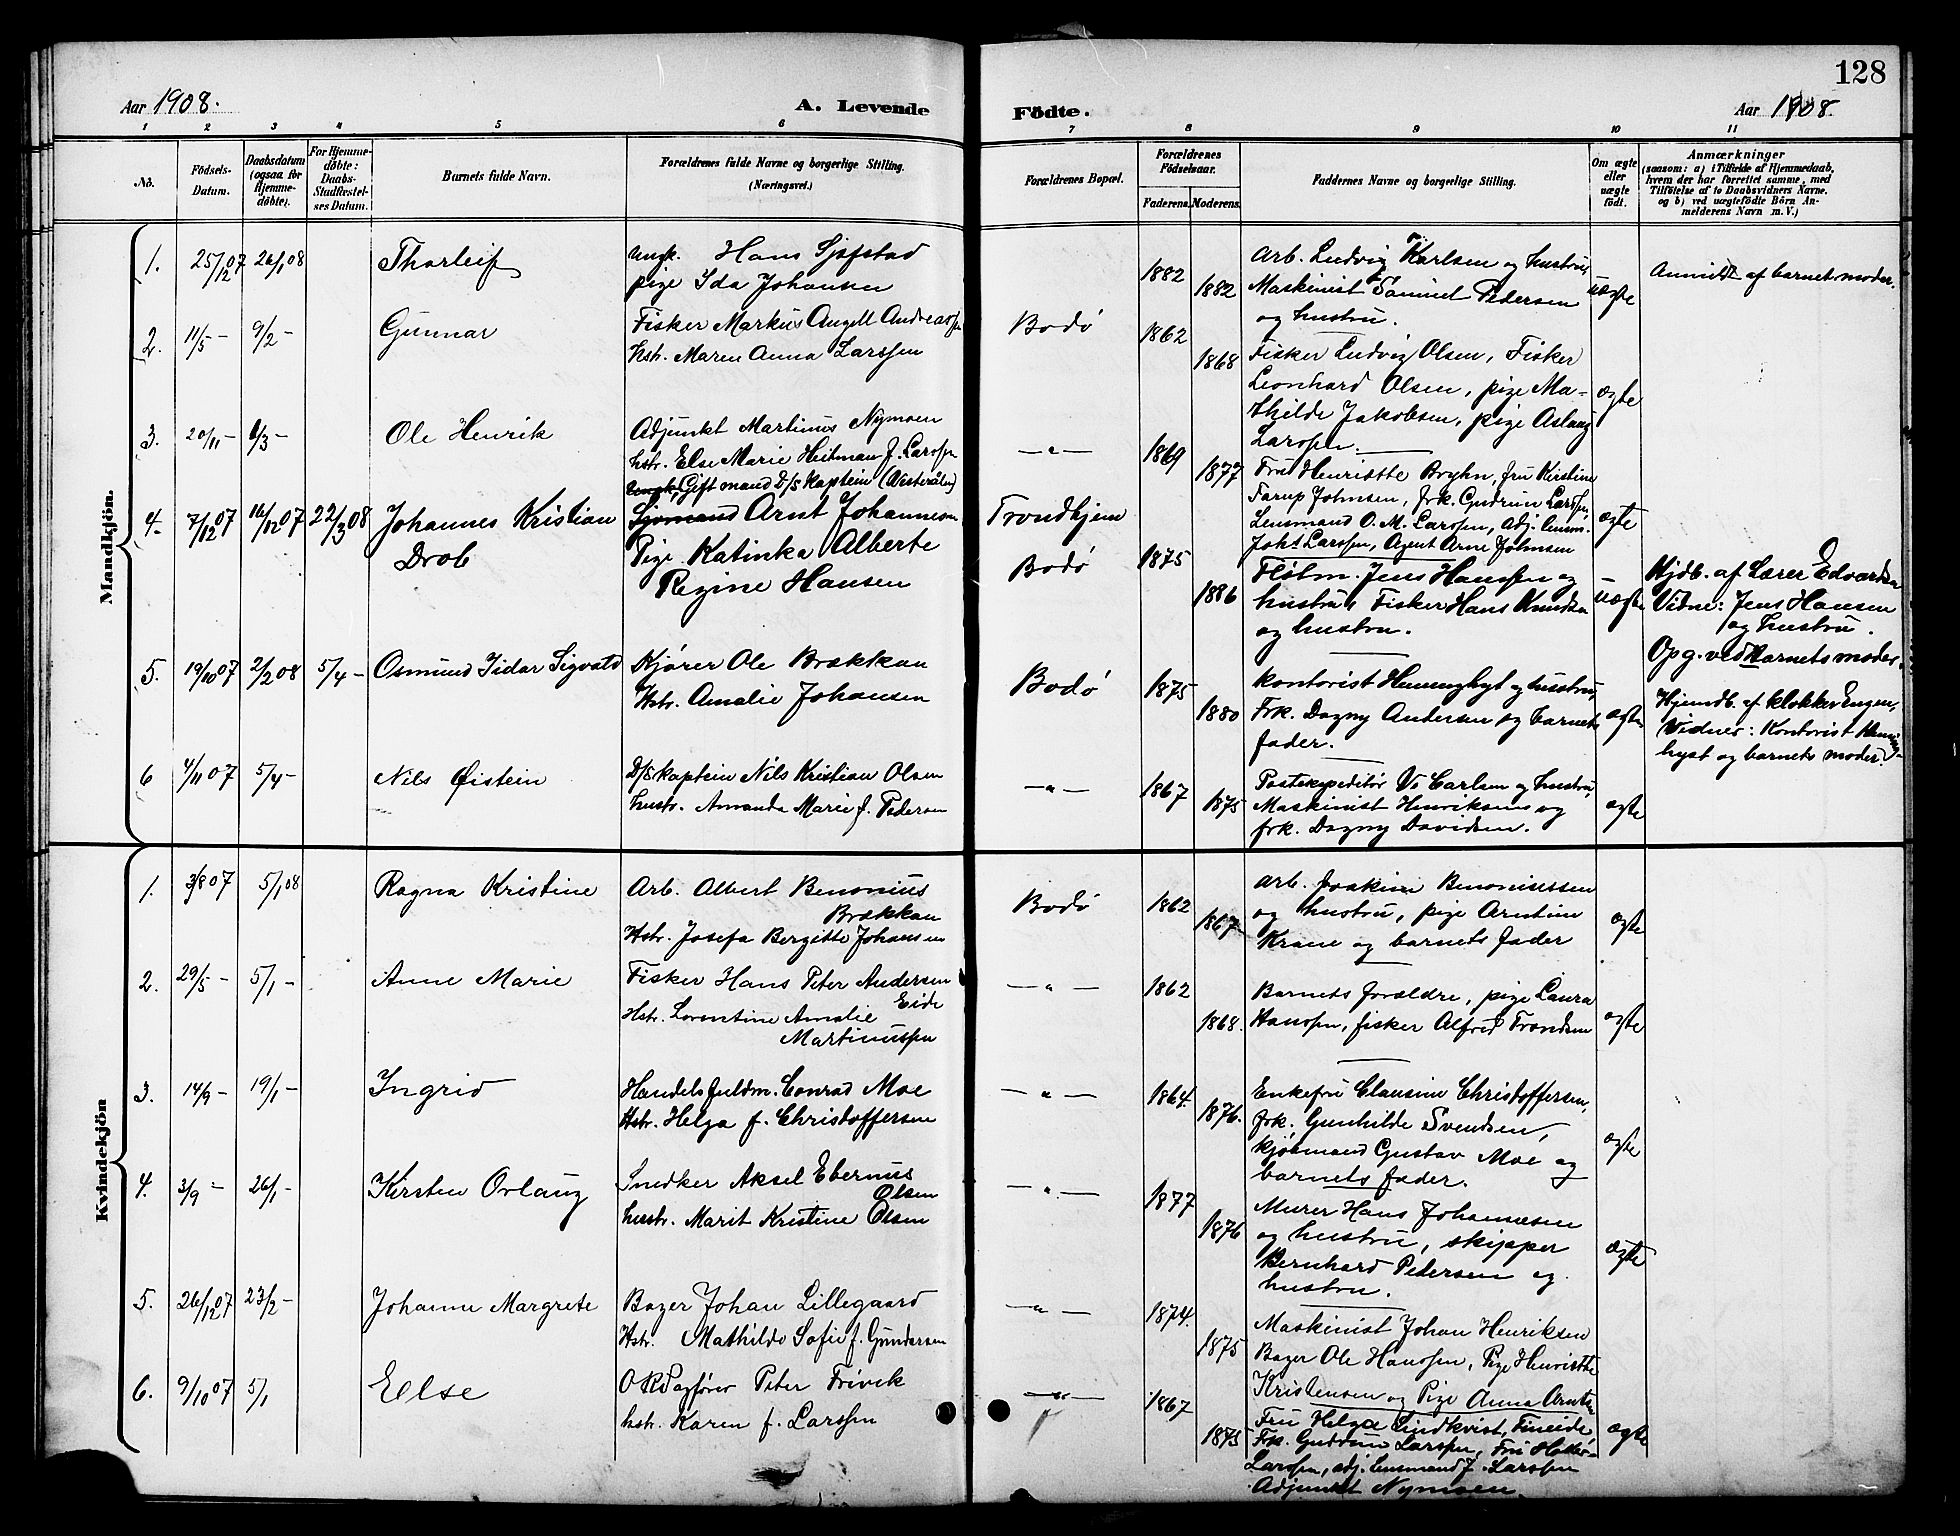 128
Aar 1908.
A. Levende
Födte.
Aar 1908.
1 2 3 4 5 6 7 8 9 10 11
No.
Födsels-
Datum.
Daabsdatum
(ogsaa for
Hjemme-
døbte).
For Hjemme-
døbte:
Daabs-
Stadfæstel-
ses Datum.
Barnets fulde Navn.
Forældrenes fulde Navne og borgerlige Stilling.
(Næringsvei.)
Forældrenes Bopæl.
Forældrenes
Födselsaar.
Faderens. Moderens.
Faddernes Navne og borgerlige Stilling.
Om ægte
eller
uægte
födt.
Anmærkninger
(saasom: a) i Tilfælde af Hjemmedaab,
hvem der har forrettet samme, med
Tilföielse af to Daabsvidners Navne.
og b) ved uægtefödte Börn An-
melderens Navn m. V.)
Mandkjön.
1. 25/12 07 26/1 08
Thorleif
Ungk. Hans Sjøfstad
pige Ida Johansen
1882 1882
Arb. Ludvig Karlsen og hustru,
Maskinist Samuel Pedersen
og hustru.
uægte
Anmeldt af barnets moder.
2. 11/5 – 9/2 –
Gunnar
Fisker Markus Angell Andreassen
hstr. Maren Anna Larssen
Bodø
1862 1868
Fisker Ludvig Olsen, Fisker
Leonhard Olsen, pige Ma-
thilde Jakobsen, pige Aslaug
Larssen.
ægte
3. 20/11 – 1/3 –
Ole Henrik
Adjunkt Martinus Nymoen
hstr. Else Marie Heitman f. Larssen
– " –
1869 1877
Fru Henriette Bryhn, fru Kirstine
Farup Johnsen, frk. Gudrun Larssen,
Lensmand O. M. Larssen, adj. lensm.
Johs Larssen, Agent Arne Johnsen
ægte
4. 7/12 07 16/12 07 22/3 08
Johannes Kristian
Drob
Ungk. Gift mand D/S kaptein (Vesterålen)
Sjømand Arnt Johannesen
Pige Katinka Alberte
Regine Hansen
Trondhjem
Bodø
1875 1886
Fløtm. Jens Hanssen og
hustru, Fisker Hans Knudsen
og hustru.
uægte
Hjdb. af Lærer Edvardsen
Vidne: Jens Hansen
og hustru.
Opg. ved barnets moder.
5. 19/10 07 2/2 08 5/4 –
Osmund Isdar Sigvald
Kjører Ole Brækkan
Hstr. Amalie Johansen
Bodø
1875 1880
Kontorist Henninghyt og hustru,
Frk. Dagny Andersen og barnets
fader.
ægte
Hjemdb. af klokker Engen,
Vidner: Kontorist Henning-
hyst og barnets moder.
6 4/11 07 5/4 –
Nils Øistein
D/S kaptein Nils Kristian Olsen
hustr. Amanda Marie f. Pedersen
– " –
1867 1875
Postekspeditør Vs Carlsen og hustru,
Maskinist Henriksen og
frk. Dagny Davidsen.
ægte
Kvindekjön
1. 3/8 07 5/1 08
Ragna Kristine
Arb. Albert Benonius
Brækkan
Hstr. Josefa Bergitte Johansen
Bodø
1862 1867
Arb. Joakim Benoniussen
og hustru, pige Arntine
Krane og barnets fader
ægte
2. 29/5 – 5/1 –
Anne Marie
Fisker Hans Peter Andersen
Eide
Hstr. Lorentine Amalie
Martinussen
– " –
1862 1868.
Barnets forældre, pige Laura
Hanssen, fisker Alfred Trondsen
ægte
3. 14/9 – 19/1 –
Ingrid
Handelsfuldm. Conrad Moe
Hstr. Helga f. Christoffersen
– " –
1864. 1876.
Enkefru Clausine Christoffersen,
frk. Gunhilde Svendsen,
kjøbmand Gustav Moe og
barnets fader.
ægte
4. 3/9 – 26/1 –
Kirsten Orlaug
Snedker Aksel Ebernus
Olsen
hustr. Marit Kristine Olsen
– " –
1877 1876
Murer Hans Johannesen
og hustru, skipper
Bernhard Pedersen og
hustru.
ægte
5. 26/12 07 23/2 –
Johanne Margrete
Bager Johan Lillegaard
Hstr. Mathilde Sofie f. Gundersen
– " –
1874. 1875
Maskinist Johan Henriksen
Bager Ole Hanssen, Pige Henriette
Kristensen og Pige Anna Arntsen
6. 9/10 07 5/1
Else
O R Sagfører Peter Frivik
hstr. Karen f. Larssen
– " –
1867 1875
Fru Helga Lindkvist, Fineide,
Frk. Guddrun Larssen, Fru
Larssen, adj. lensmand J. Larssen
Adjunkt Nymoen.
ægte